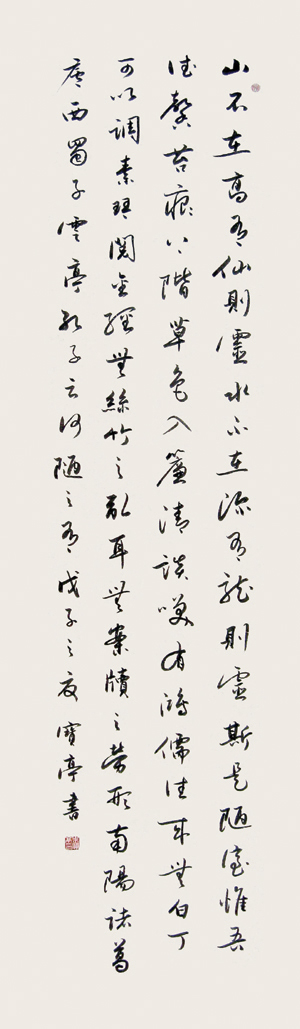 山不在高有仙則靈水不在深有龍則靈斯是陋室惟吾
德馨苔痕上階草色入簾清談笑有鴻儒往来無白丁
可以調素琴閱金經無絲竹之亂耳無案牘之勞形南陽諸葛
廬西蜀子雲亭孔子云何陋之有戊子之夏寶亭書